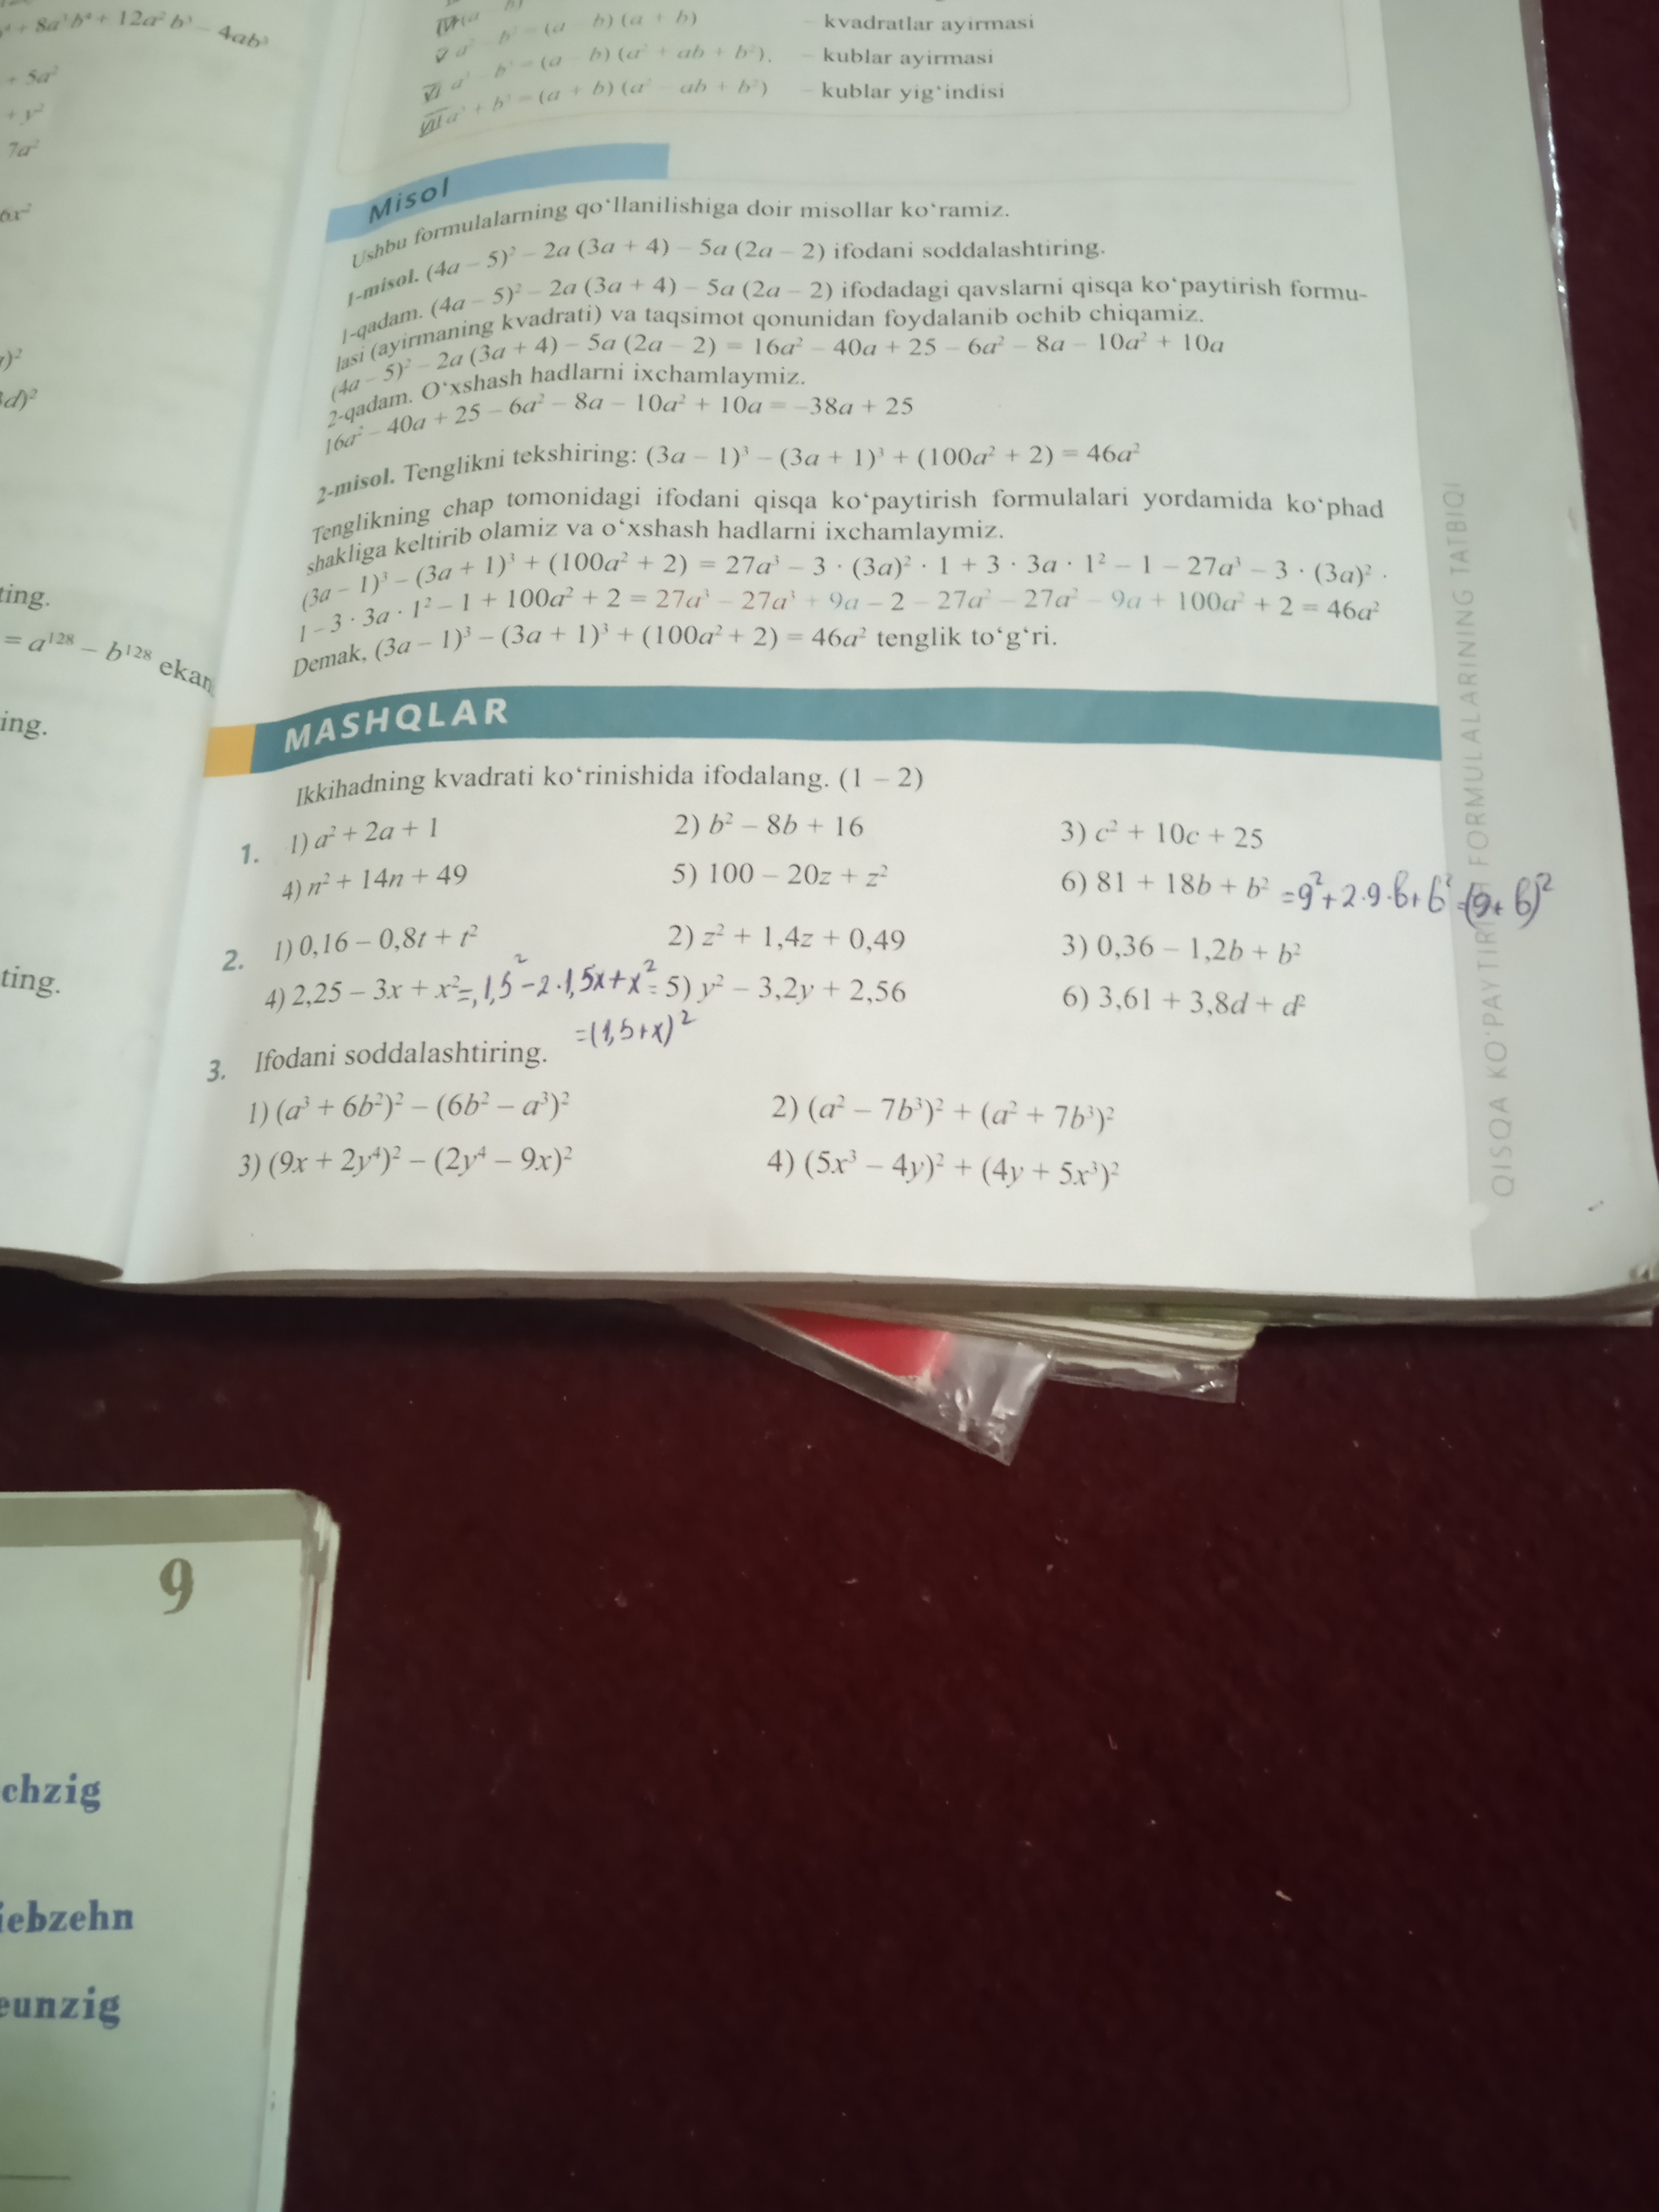 + 8a³b⁴ + 12a²b³ – 4ab³
+ 5a²
+ y²
7a²
6x²
)²
d)²
ting.
= a¹²⁸ – b¹²⁸ ekan
ing.
ting.
a² – b² = (a – b) (a + b) – kvadratlar ayirmasi
a³ – b³ = (a – b) (a² + ab + b²), – kublar ayirmasi
a³ + b³ = (a + b) (a² – ab + b²) – kublar yig‘indisi
Misol
Ushbu formulalarning qo‘llanilishiga doir misollar ko‘ramiz.
1-misol. (4a – 5)² – 2a (3a + 4) – 5a (2a – 2) ifodani soddalashtiring.
1-qadam. (4a – 5)² – 2a (3a + 4) – 5a (2a – 2) ifodadagi qavslarni qisqa ko‘paytirish formu-
lasi (ayirmaning kvadrati) va taqsimot qonunidan foydalanib ochib chiqamiz.
(4a – 5)² – 2a (3a + 4) – 5a (2a – 2) = 16a² – 40a + 25 – 6a² – 8a – 10a² + 10a
2-qadam. O‘xshash hadlarni ixchamlaymiz.
16a² – 40a + 25 – 6a² – 8a – 10a² + 10a = –38a + 25
2-misol. Tenglikni tekshiring: (3a – 1)³ – (3a + 1)³ + (100a² + 2) = 46a²
Tenglikning chap tomonidagi ifodani qisqa ko‘paytirish formulalari yordamida ko‘phad
shakliga keltirib olamiz va o‘xshash hadlarni ixchamlaymiz.
(3a – 1)³ – (3a + 1)³ + (100a² + 2) = 27a³ – 3 · (3a)² · 1 + 3 · 3a · 1² – 1 – 27a³ – 3 · (3a)² ·
1 – 3 · 3a · 1² – 1 + 100a² + 2 = 27a³ – 27a³ + 9a – 2 – 27a² – 27a² – 9a + 100a² + 2 = 46a²
Demak, (3a – 1)³ – (3a + 1)³ + (100a² + 2) = 46a² tenglik to‘g‘ri.
MASHQLAR
Ikkihadning kvadrati ko‘rinishida ifodalang. (1 – 2)
1. 1) a² + 2a + 1 2) b² – 8b + 16 3) c² + 10c + 25
4) n² + 14n + 49 5) 100 – 20z + z² 6) 81 + 18b + b² = 9² + 2·9·b + b² = (9 + b)²
2. 1) 0,16 – 0,8t + t² 2) z² + 1,4z + 0,49 3) 0,36 – 1,2b + b²
4) 2,25 – 3x + x² = 1,5² – 2·1,5x + x² = 5) y² – 3,2y + 2,56 6) 3,61 + 3,8d + d²
= (1,5 + x)²
3. Ifodani soddalashtiring.
1) (a³ + 6b²)² – (6b² – a³)² 2) (a² – 7b³)² + (a² + 7b³)²
3) (9x + 2y⁴)² – (2y⁴ – 9x)² 4) (5x³ – 4y)² + (4y + 5x³)²
QISQA KO‘PAYTIRISH FORMULALARINING TATBIQI
9
chzig
iebzehn
eunzig